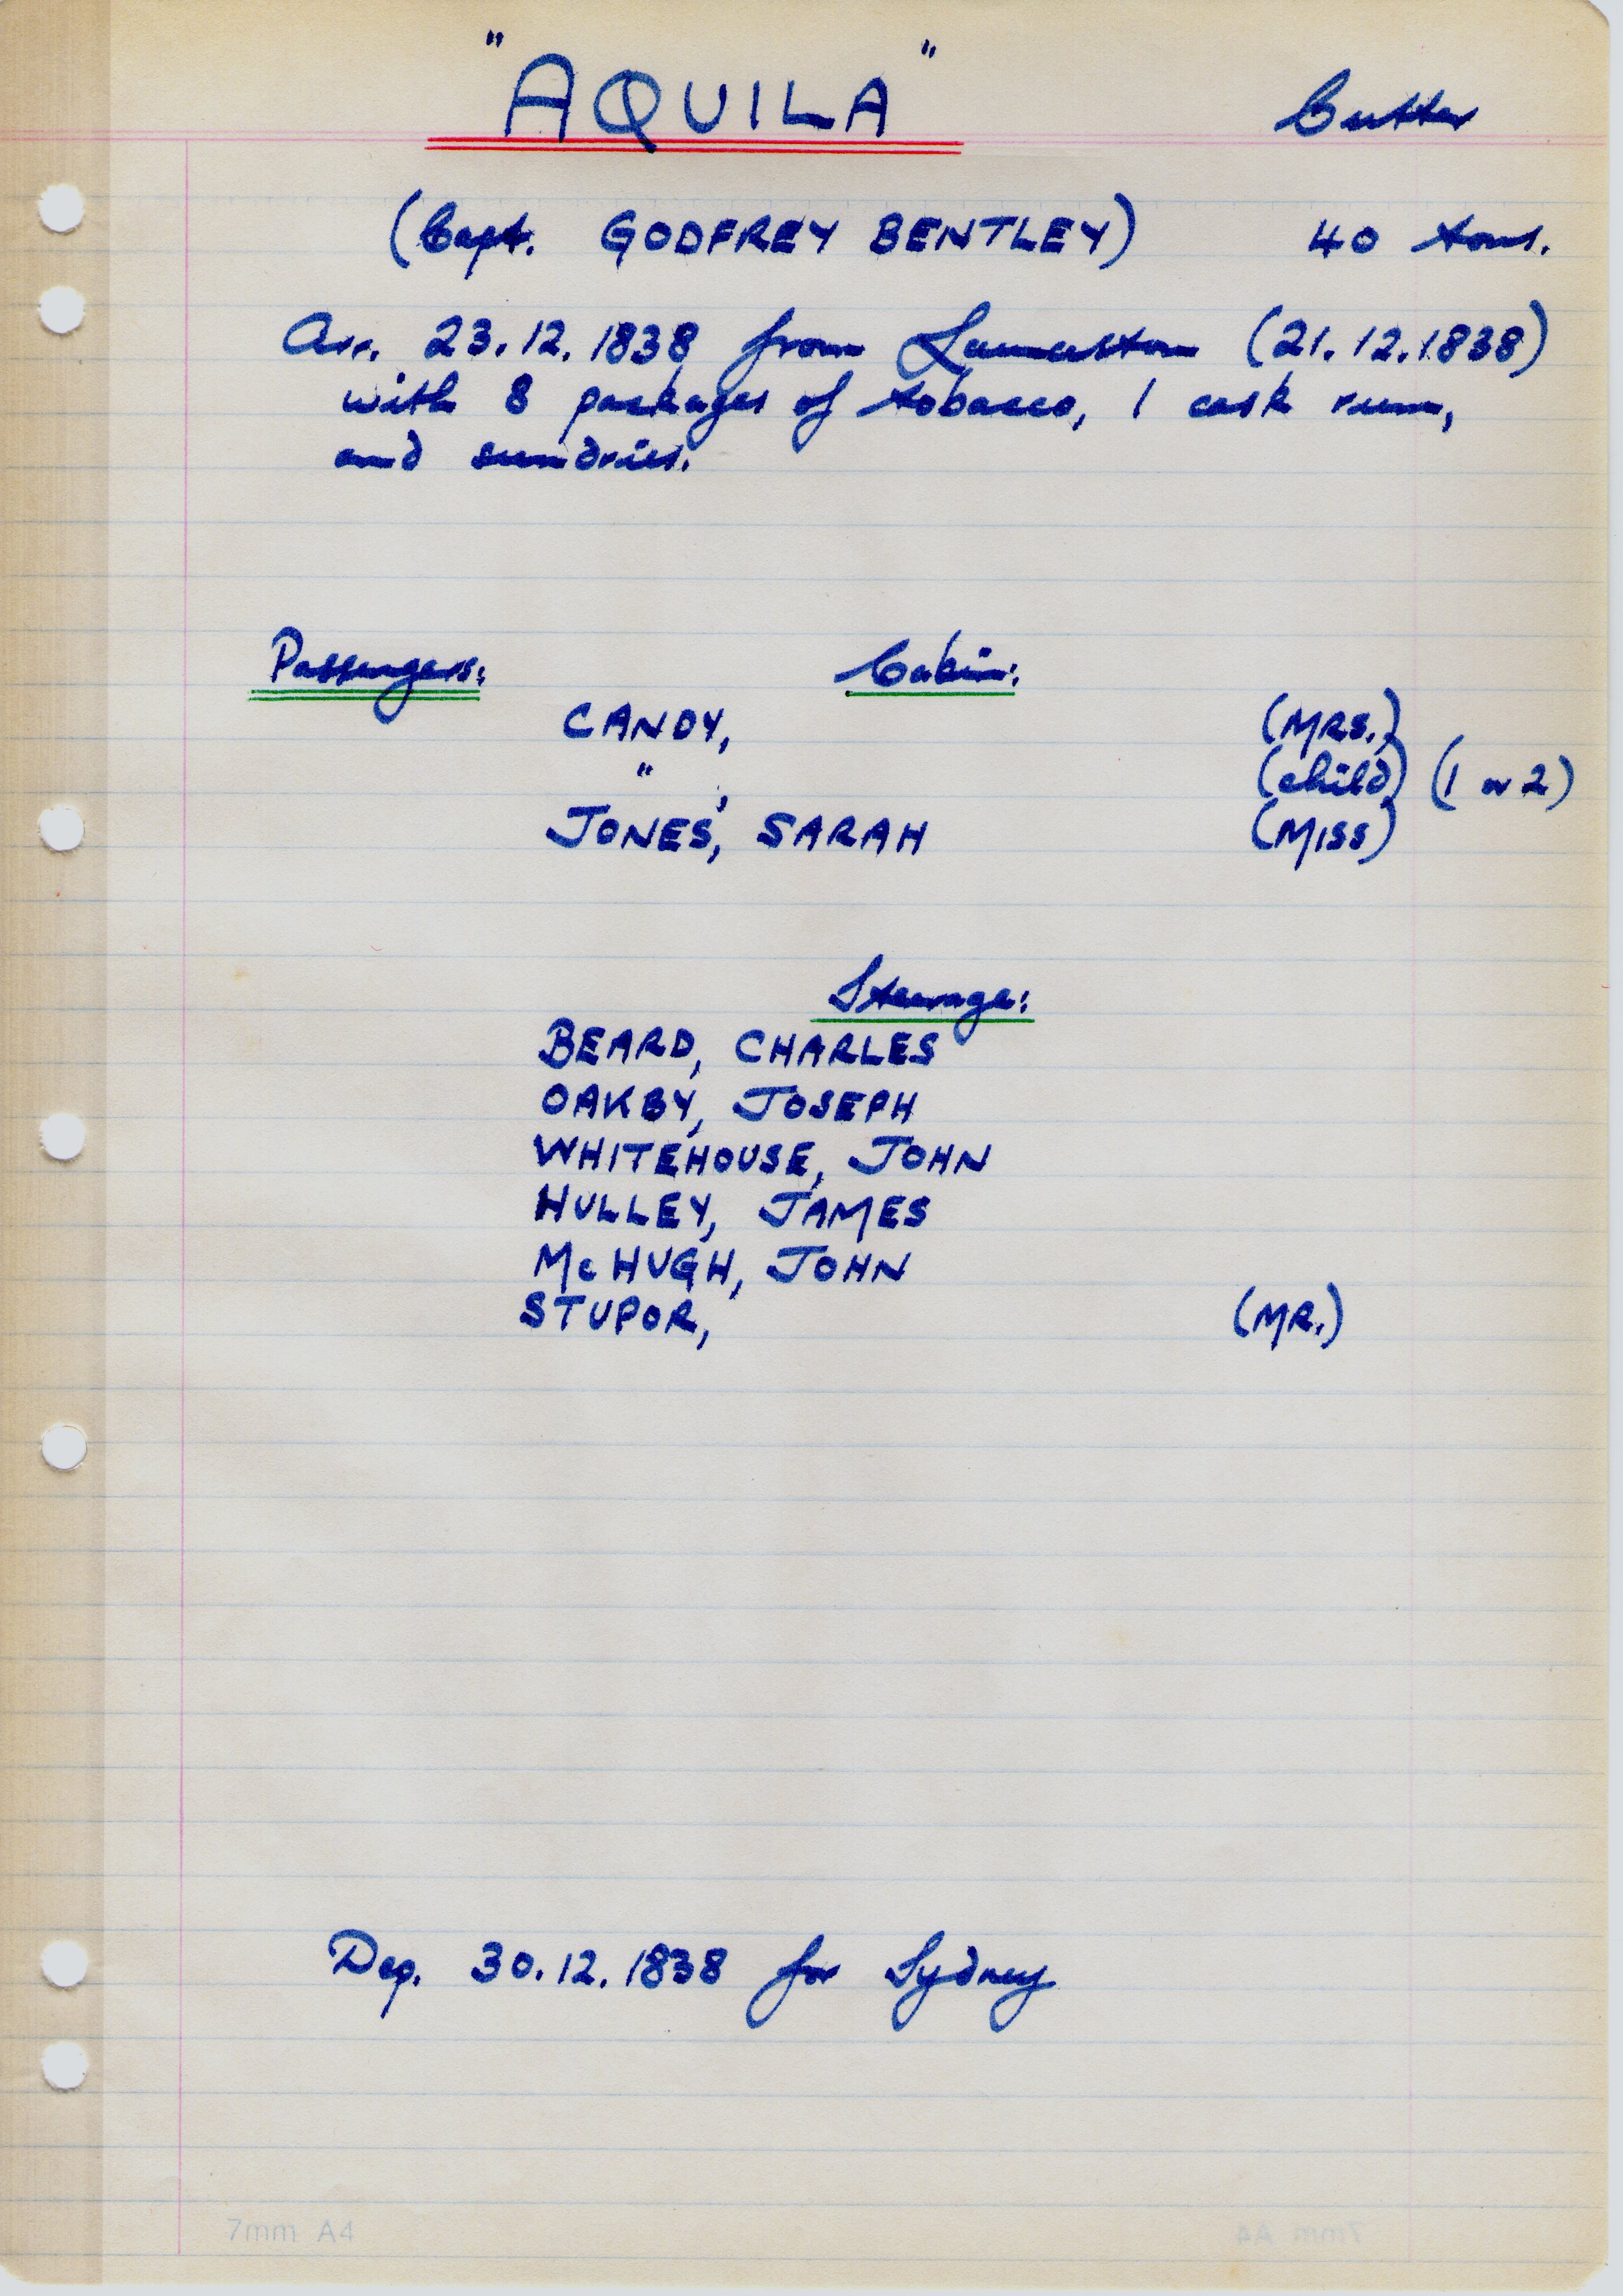 "AQUILA" Cutter
(Capt. GODFREY BENTLEY) 40 tons.
Arr. 23.12.1838 from Launceston (21.12.1838)
with 8 packages of tobacco, 1 cask rum,
and sundries.
Passengers: Cabin:
CANDY, (MRS.)
" , (child) (1 or 2)
JONES, SARAH (MISS)
Steerage:
BEARD, CHARLES
OAKBY, JOSEPH
WHITEHOUSE, JOHN
HULLEY, JAMES
McHUGH, JOHN
STUPOR, (MR.)
Dep. 30.12.1838 for Sydney
7mm A4